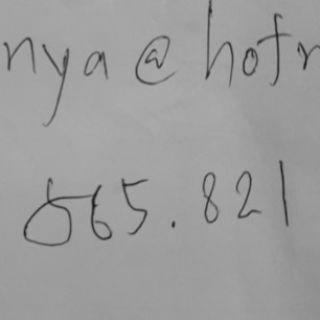 nya@hotm
565.821